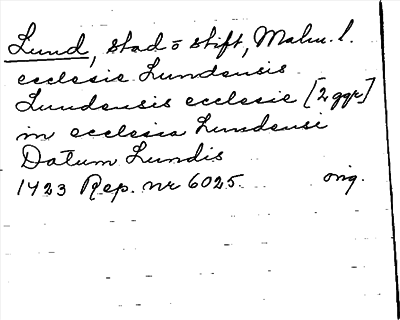 Lund, stad o stift, Malm. l.
ecclesie Lundensis
Lundensis ecclesie [2 ggr]
in ecclesia Lundensi
Datum Lundis
1423 Rep. nr 6025. orig.